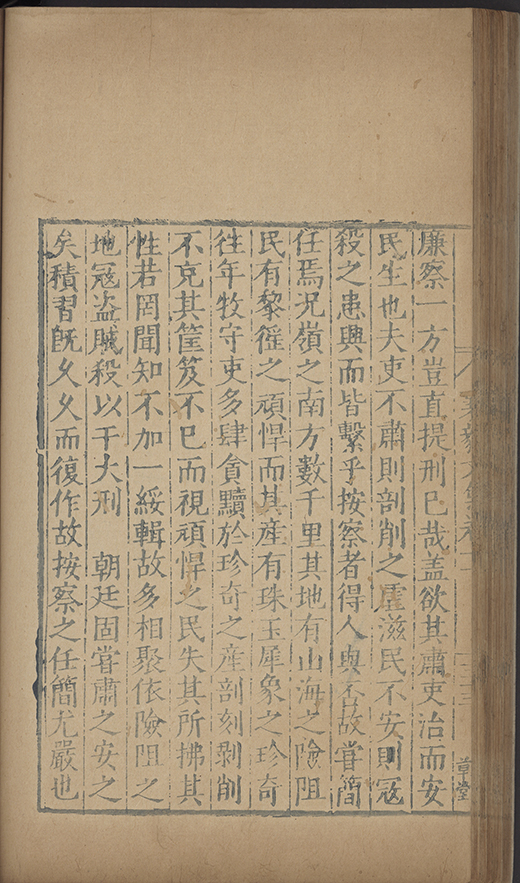 廉察一方豈直提刑巳哉蓋欲其肅吏治而安
民生也夫吏不肅則剖削之虐滋民不安則冦
殺之患興而皆繫乎按察者得人與否故甞簡
任焉况嶺之南方數千里其地有山海之險阻
民有黎徭之頑悍而其產有珠玉犀象之珍奇
徃年牧守吏多肆貪黷於珍奇之產剖刻剝削
不充其筐笈不巳而視頑悍之民失其所拂其
性若罔聞知不加一綏輯故多相聚依險阻之
地冦盗賊殺以干大刑　朝廷固甞肅之安之
矣積習旣乆乆而復作故按察之任簡尤嚴也
草堂